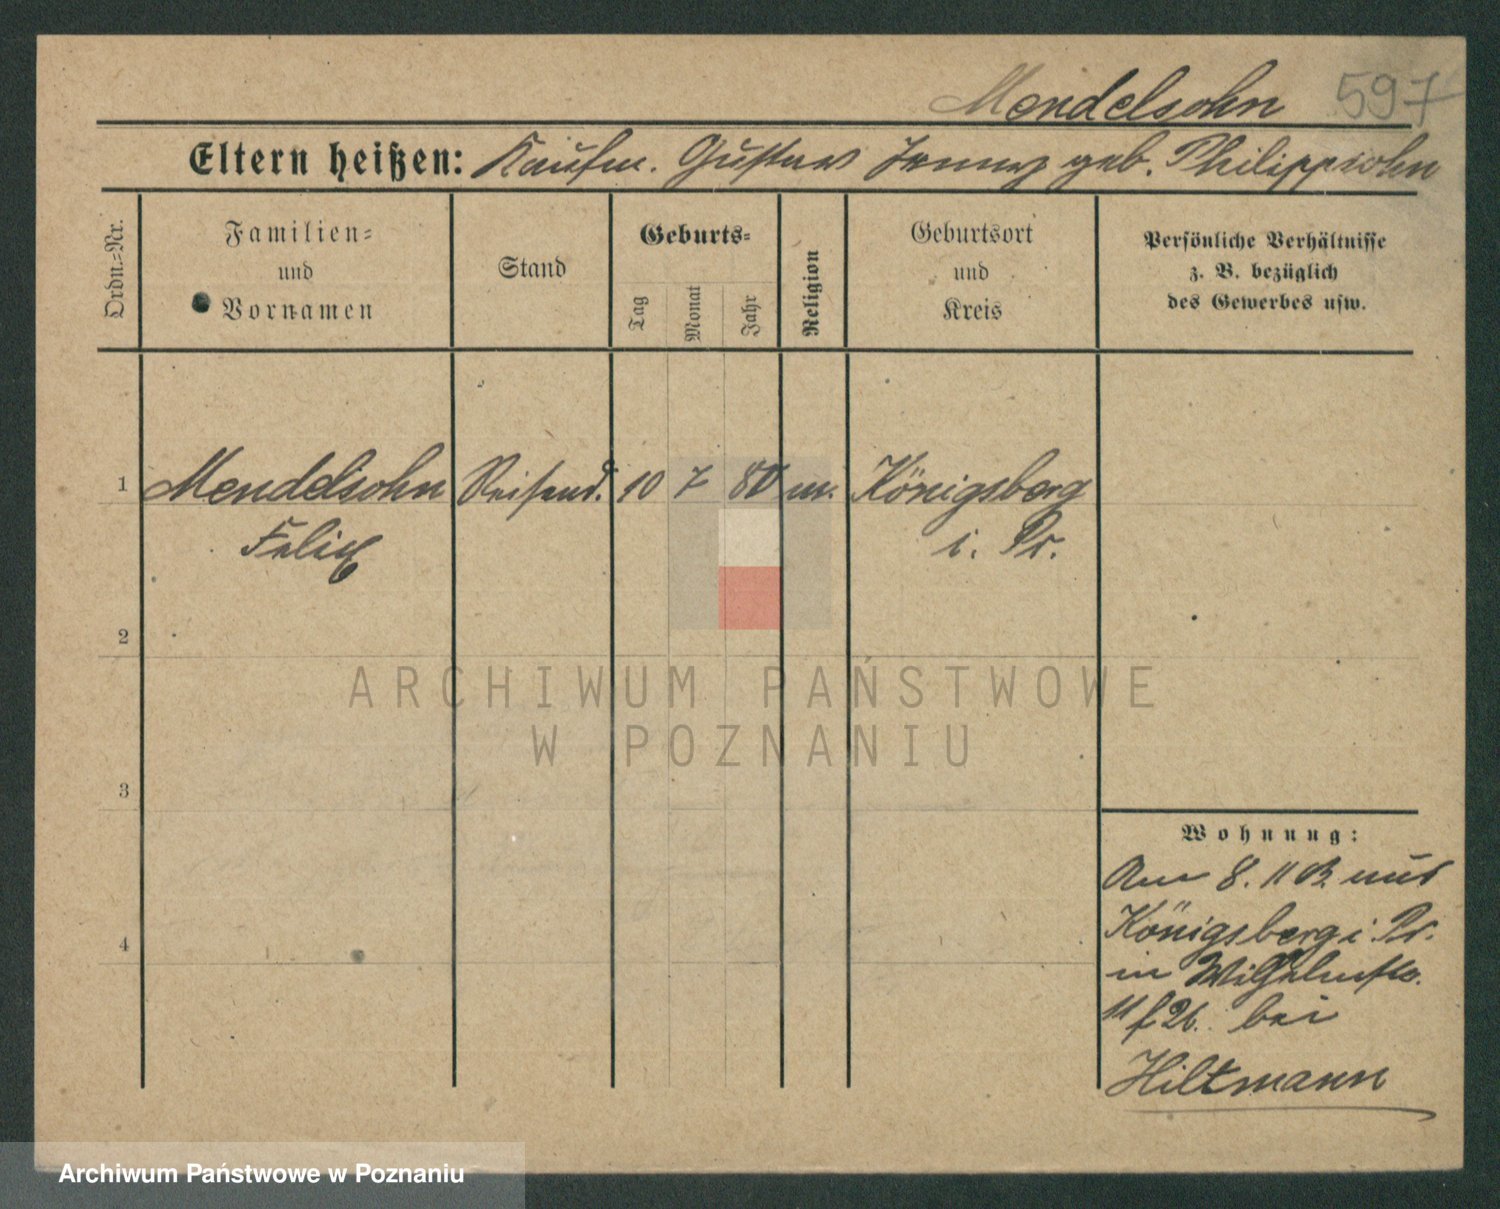 Mendelsohn 597
Eltern heißen: Kaufm. Gustav Jenny geb. Philippsohn
Ordn.-Nr.
Familien-
und
Vornamen
Stand
Geburts-
Tag
Monat
Jahr
Religion
Geburtsort
und
Kreis
Persönliche Verhältnisse
z. B. bezüglich
des Gewerbes usw.
1 Mendelsohn Reisend. 10 7 80 m. Königsberg
Felix i. Pr.
2
ARCHIWUM PAŃSTWOWE
W POZNANIU
3
Wohnung:
Am 8. 11 aus
Königsberg i. Pr.
in Wilhelmstr.
26. bei
Hiltmann
4
Archiwum Państwowe w Poznaniu